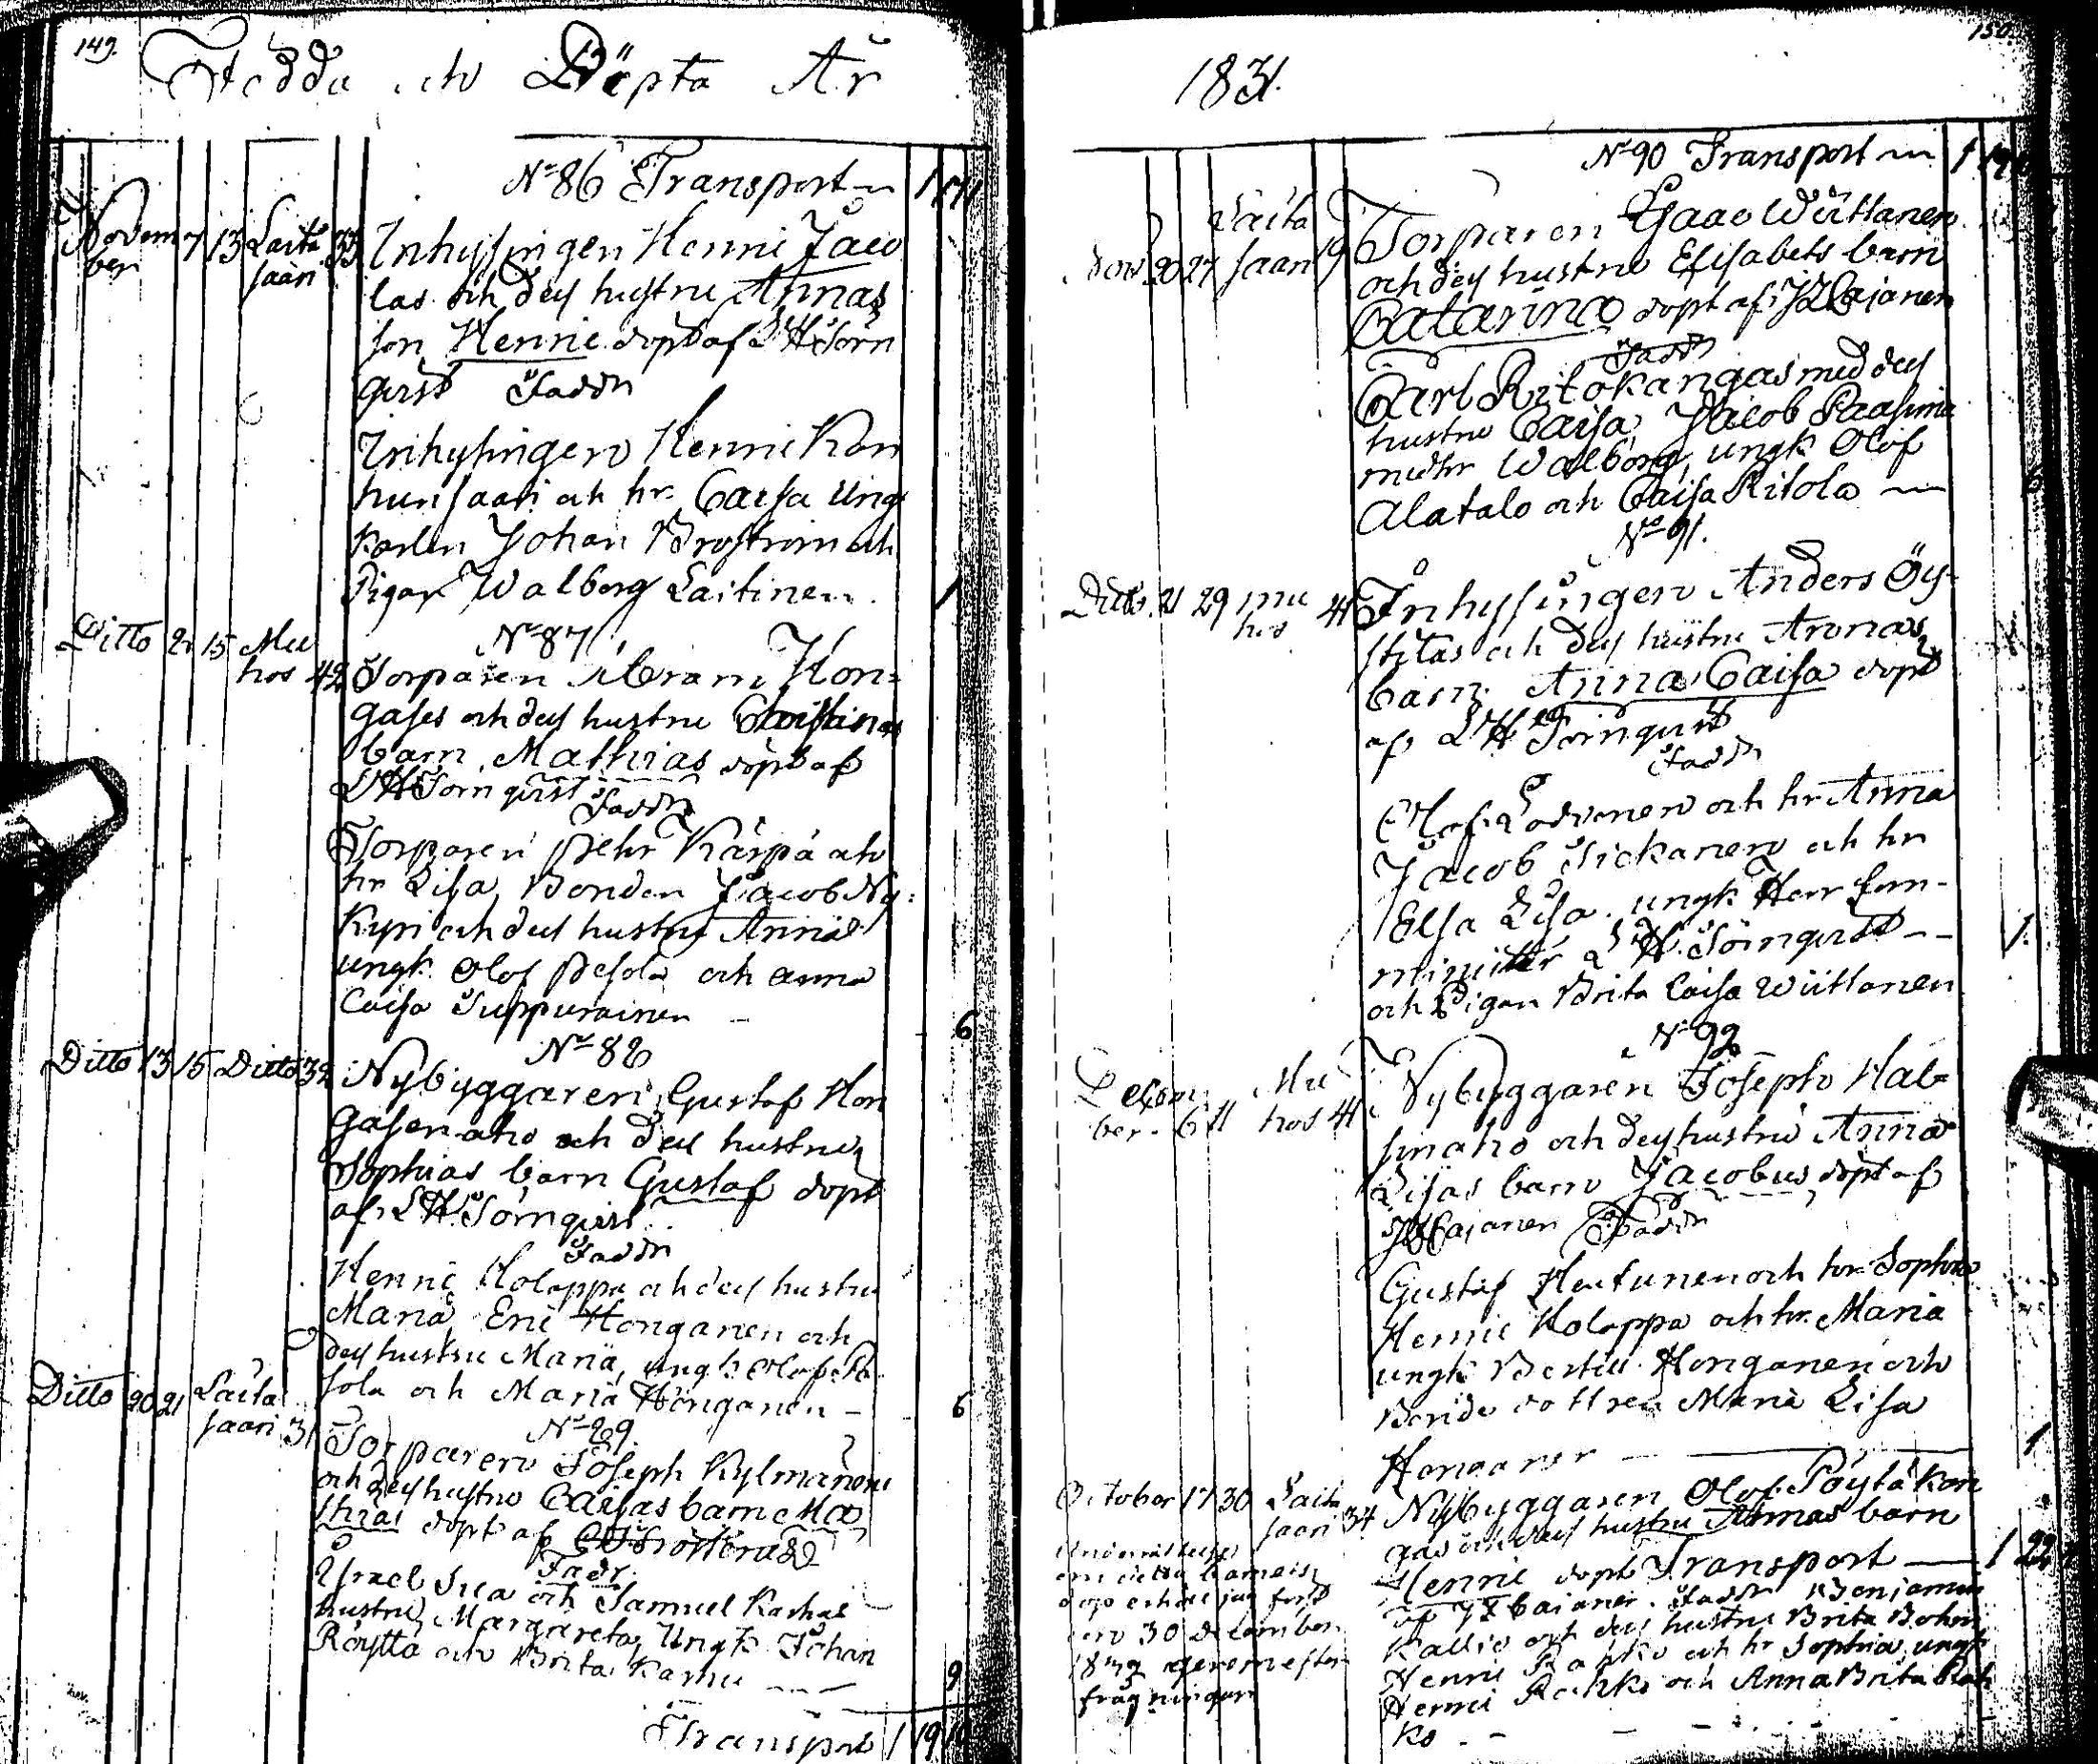 149.
Födde och Döpta År
N=o 86 Transport
Novem 7 13 Laita 33 Inhysingen Henric Jaco
ber saari
las och dess hustru Annas
son Henric döpt af L H Törn
qvist Faddr
Inhysingen Henric Kon
hunsaari och hr Caisa Ung
karlen Johan Broström och
Pigan Walborg Laitinen. 1
N=o 87
Ditto 2 15 Mu
hos 42 Torparen Abram Hon=
gases och dess hustru
barn Mathias döpt af
L H Törnqvist Faddr
Torparen Pehr Kärpä och
hr Lisa, Bonden Jacob Ny=
kyri och dess hustru Anna
ungk. Olof Pesola och Anna
Caisa Suppurainen 6
N=o 88
Ditto 13 15 Ditto 32 Nybyggaren Gustaf Hon
gasenaho och dess hustru
Sophias barn Gustaf döpt
af L H Törnqvist
Faddr
Henric Holappa och dess hustru
Maria, Eric Honganen och
dess hustru Maria, ungk. Olof Pe
sola och Maria Honganen 6
N=o 89
Ditto 20 21 Laita
saari 31 Torparen Joseph Kylmänen
och dess hustru Caisas barn Ma
thias döpt af
Faddr.
Israel och Samuel Karhus
hustru, Margareta, Ungk Johan
Röyttä och Brita Karhu 9
Transport 1 19
150.
1831.
N=o 90 Transport 1 19
Nov. 20 27 Laita
saari 19 Torparen Isaac Wüttanen
och dess hustru Elisabets barn
Catarina döpt af J L Cajanen
Faddr
Carl Ritokangas med dess
hustru Caisa, Jacob Paasima
med hr Walborg, ungk Olof
Alatalo och Caisa Ritola 6
N=o 91.
Ditto 21 29 Mu
hos 41 Inhysingen Anders Öy-
stilas och dess hustru Annas
barn Anna Caisa döpt
af L H Törnqvist
Faddr
Olof Lodvonen och hr Anna
Jacob Tickanen och hr
Elsa Lisa. ungk Herr Com-
minister L H. Törnqvist 1.
och Pigan Brita Caisa Wüttanen
N=o 92
Decem
ber. 6 11 Mu
hos 41 Nybyggaren Joseph Hal=
sinaho och dess hustru Anna
Lisas barn Jacobus döpt af
J L Cajanen Faddr
Gustaf Heutunen och hr Sophia
Henric Holappa och hr. Maria
ungk Bertill Honganen och
Bonde dottren Maria Lisa
Honganen 1
October 17 30 Laita
saari 34 Nybyggaren Olof Pöytäkan
gas och dess hustru Annas barn
Henric döpt Transport 1 22
af J L Cajanen. Faddr Benjamin
Kallio och dess hustru Brita
Henric Rahko och hr Sophia ungk
Henric Rahko och Anna Brita Rah
ko.
Underrättelse
om detta barnets
dop erhöll jag först
den 30 December
genom efter-
frågningar